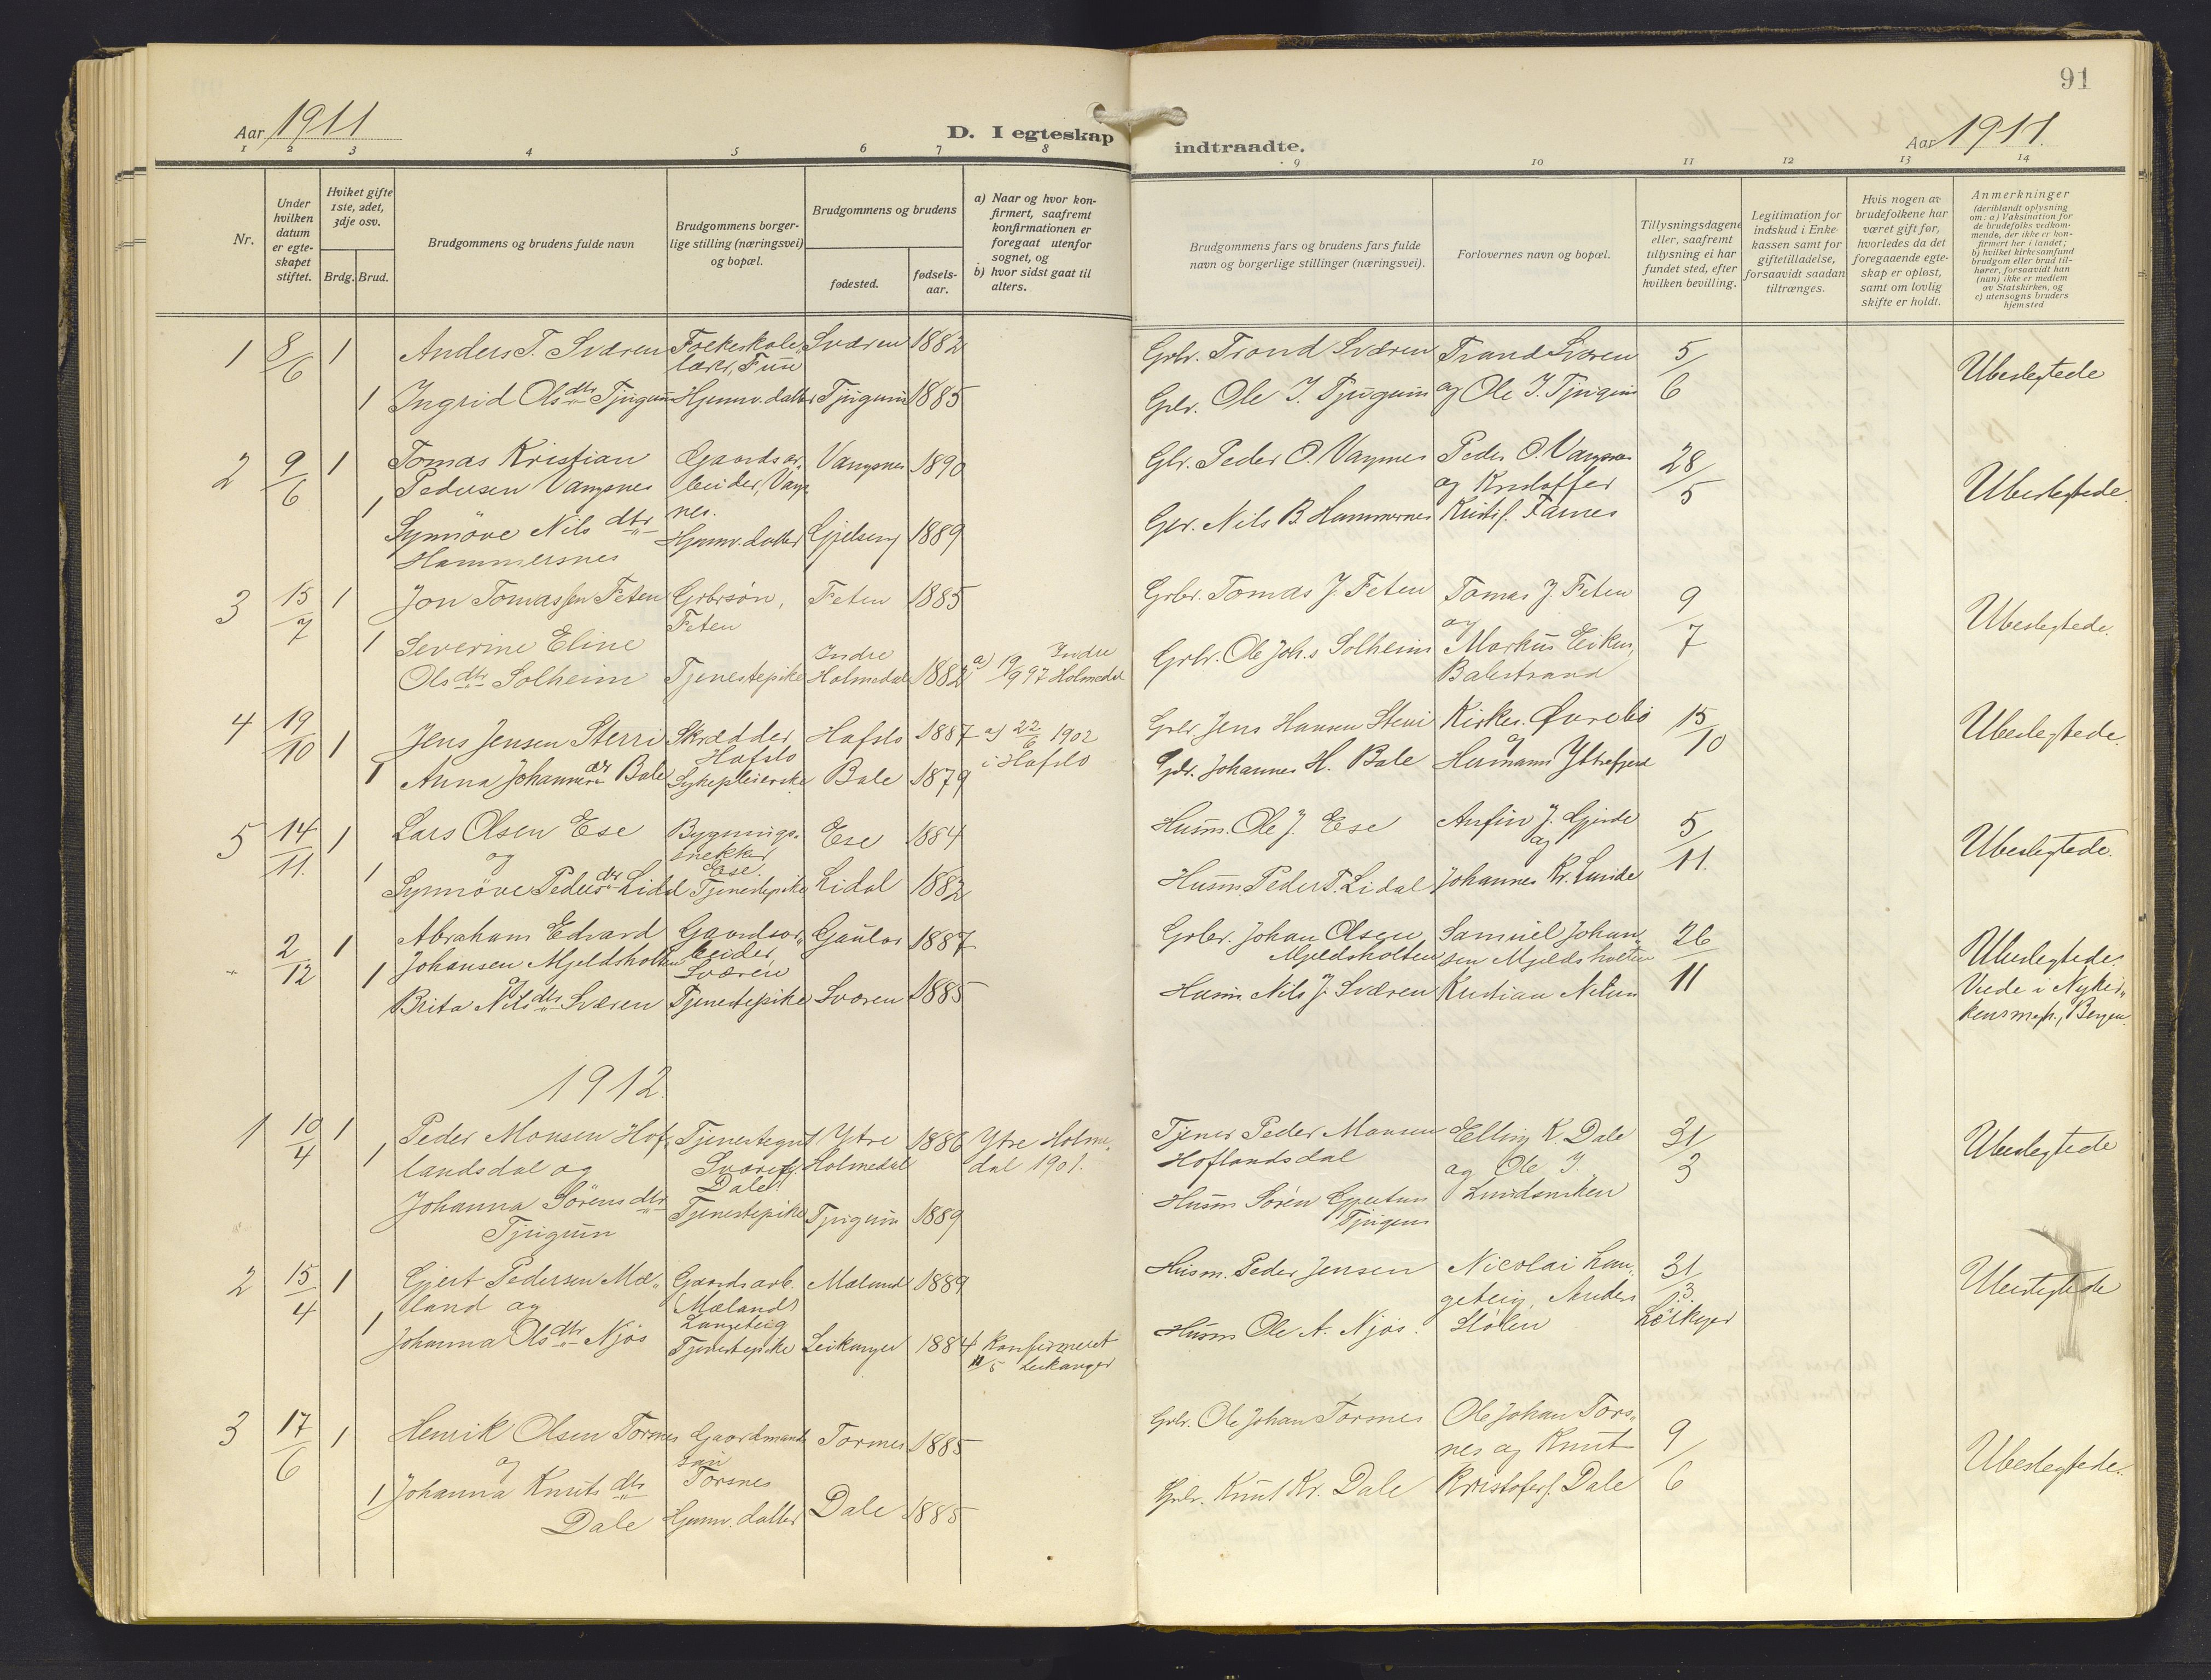 91
Aar 1911
D. I egteskap indtraadte.
Aar 1911.
1 2 3 4 5 6 7 8 9 10 11 12 13 14
Nr.
Under hvilken datum er egte-skapet stiftet.
Hviket gifte 1ste, 2det, 3dje osv.
Brdg. Brud.
Brudgommens og brudens fulde navn
Brudgommens borger-lige stilling (næringsvei) og bopæl.
Brudgommens og brudens
fødested.
fødsels-aar.
a) Naar og hvor kon-firmert, saafremt konfirmationen er foregaat utenfor sognet, og
b) hvor sidst gaat til alters.
Brudgommens fars og brudens fars fulde navn og borgerlige stillinger (næringsvei).
Forlovernes navn og bopæl.
Tillysningsdagene eller, saafremt tillysning ei har fundet sted, efter hvilken bevilling.
Legitimation for indskud i Enke-kassen samt for giftetilladelse, forsaavidt saadan tiltrænges.
Hvis nogen av brudefolkene har været gift før, hvorledes da det foregaaende egte-skap er opløst, samt om lovlig skifte er holdt.
Anmerkninger
(deriblandt oplysning om: a) Vaksination for de brudefolks vedkom-mende, der ikke er kon-firmert her i landet;
b) hvilket kirkesamfund brudgom eller brud til-hører, forsaavidt han (hun) ikke er medlem av Statskirken, og
c) utensogns bruders hjemsted
1 8/6 1 Anders T. Sværen Folkeskole- Sværen 1882 Grbr. Trond Sværen Trond Sværen 5/6 Ubeslegtede
lærer,
1 Ingrid Olsdtr Tjugum Hjemv. datter Tjugum 1885 Grbr. Ole J. Tjugum og Ole J. Tjugum
2 9/6 1 Tomas Kristian Gaardsar- Vangsnes 1890 Gbr. Peder O. Vangsnes Peder O. Vangsnes 28/5 Ubeslegtede.
Pedersen Vangsnes beider, Vangs- og Kristoffer
1 nes. Gbr. Nils B. Hammersnes Kristif. Farnes
Synnöve Nilsdtr Hjemv. datter 1889
Hammersnes
3 15/7 1 Jon Tomassen Feten Grbrsøn, Feten 1885 Grbr. Tomas J. Feten Tomas J. Feten 9/7 Ubeslegtede.
Feten og
1 Severine Eline Indre Indre Grbr. Ole Joh.s Solheim Markus
Olsdtr Solheim Tjenestepike Holmedal 1882 a) 19/9 97 Holmedal Balestrand
4 19/10 1 Jens Jensen Sterri Skrædder Hafslo 1887 a) 22/6 1902 Grbr. Jens Hansen Kirkes. Øvrebö 15/10 Ubeslegtede.
Hafslo i Hafslo og
1 Anna Johannesdr Bale Sykepleierske Bale 1879 Gbr. Johannes H. Bale Hermann Ytrefjord
5 14/11. 1 Lars Olsen Ese Bygnings- Ese 1884 Husm. Ole J. Ese Anfin J. Gjerde 5/11. Ubeslegtede.
og snekker og
Ese.
1 Synnöve Pedersdr Lidal Tjenestepike Lidal 1882 Husm. Peder T. Lidal Johannes Kr. Lunde
2/12 1 Abraham Edvard Gaardsar- Gaular 1887 Grbr. Johan Olsen Samuel Johan- 26/11 Ubeslegtede.
Johansen Mjeldsholten beider, Mjeldsholten sen Mjeldsholten
1 og Sværen Viede i Nykir-
Brita Nilsdtr Sværen Tjenestepike Sværen 1885 Husm. Nils J. Sværen Kristian Nilsen kens Bergen.
1912.
1 10/4 1 Peder Monsen Hof- Tjenestegut Ytre 1886 Ytre Holme- Tjener Peder Monsen Elling K. Dale 31/3 Ubeslegtede
1 landsdal og Holmedal dal 1901. Hoflandsdal og Ole J.
Dale
Johanna Sörensdtr Tjenestepike Tjugum 1889 Husm Sören Gjertsen
Tjugum Tjugum
2 15/4 1 Gjert Pedersen Mæ- Gaardsarb. Mæland 1889 Husm. Peder Jensen Nicolai Lan- 31/3. Ubeslegtede
land og (Mæland) geteig, Anders
1 Langeteig Leikanger
Johanna Olsdtr Njøs Tjenestepike Leikanger 1884 Konfirmeret Husm Ole A. Njøs.
11/5 Leikanger
3 17/6 1 Henrik Olsen Torsnes Gaardmands Torsnes 1885 Grbr. Ole Johan Torsnes Ole Johan Tors- 9/6 Ubeslegtede.
og søn nes og Knut
Torsnes
1 Johanna Knutsdtr Grbr. Knut Kr. Dale Kristofers. Dale
Dale Hjemv. datter Dale 1885